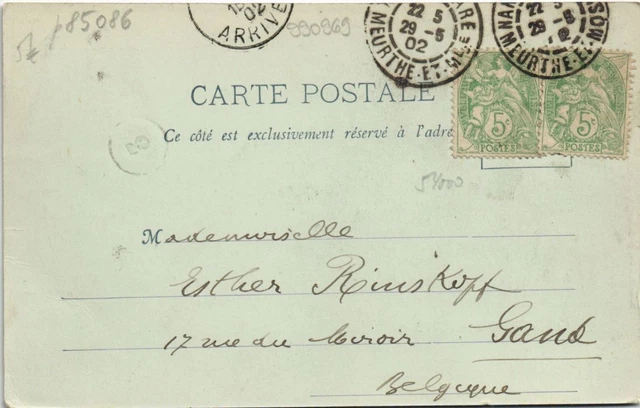 p85086
990969
02
ARRIVE
22 5
29 -5
02
MEURTHE-ET-Mlle
GARE
22 5
29 -5
MEURTHE-ET-
CARTE POSTALE
Ce côté est exclusivement réservé à l'adre
5c 5c
POSTES POSTES
Mademoiselle
Esther Rinskopf
17 rue du Miroir Gand
Belgique